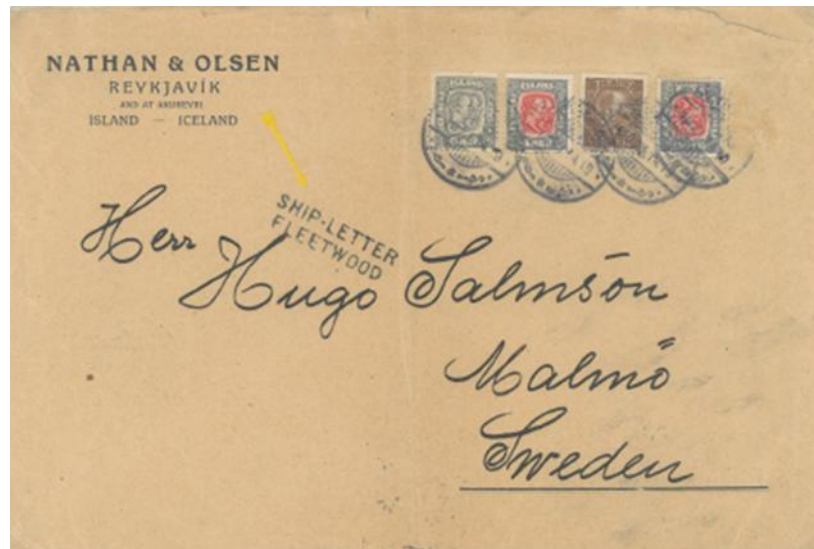 NATHAN & OLSEN
REYKJAVÍK
AND AT AKUREYRI
ISLAND — ICELAND
SHIP-LETTER
FLEETWOOD
Herr
Hugo Salmson
Malmö
Sweden